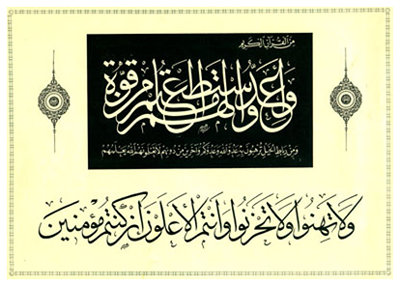 من القرآن الكريم
وأعدوا لهم ما استطعتم من قوة
ومن رباط الخيل ترهبون به عدو الله وعدوكم وآخرين من دونهم لا تعلمونهم الله يعلمهم
ولا تهنوا ولا تحزنوا وأنتم الأعلون إن كنتم مؤمنين